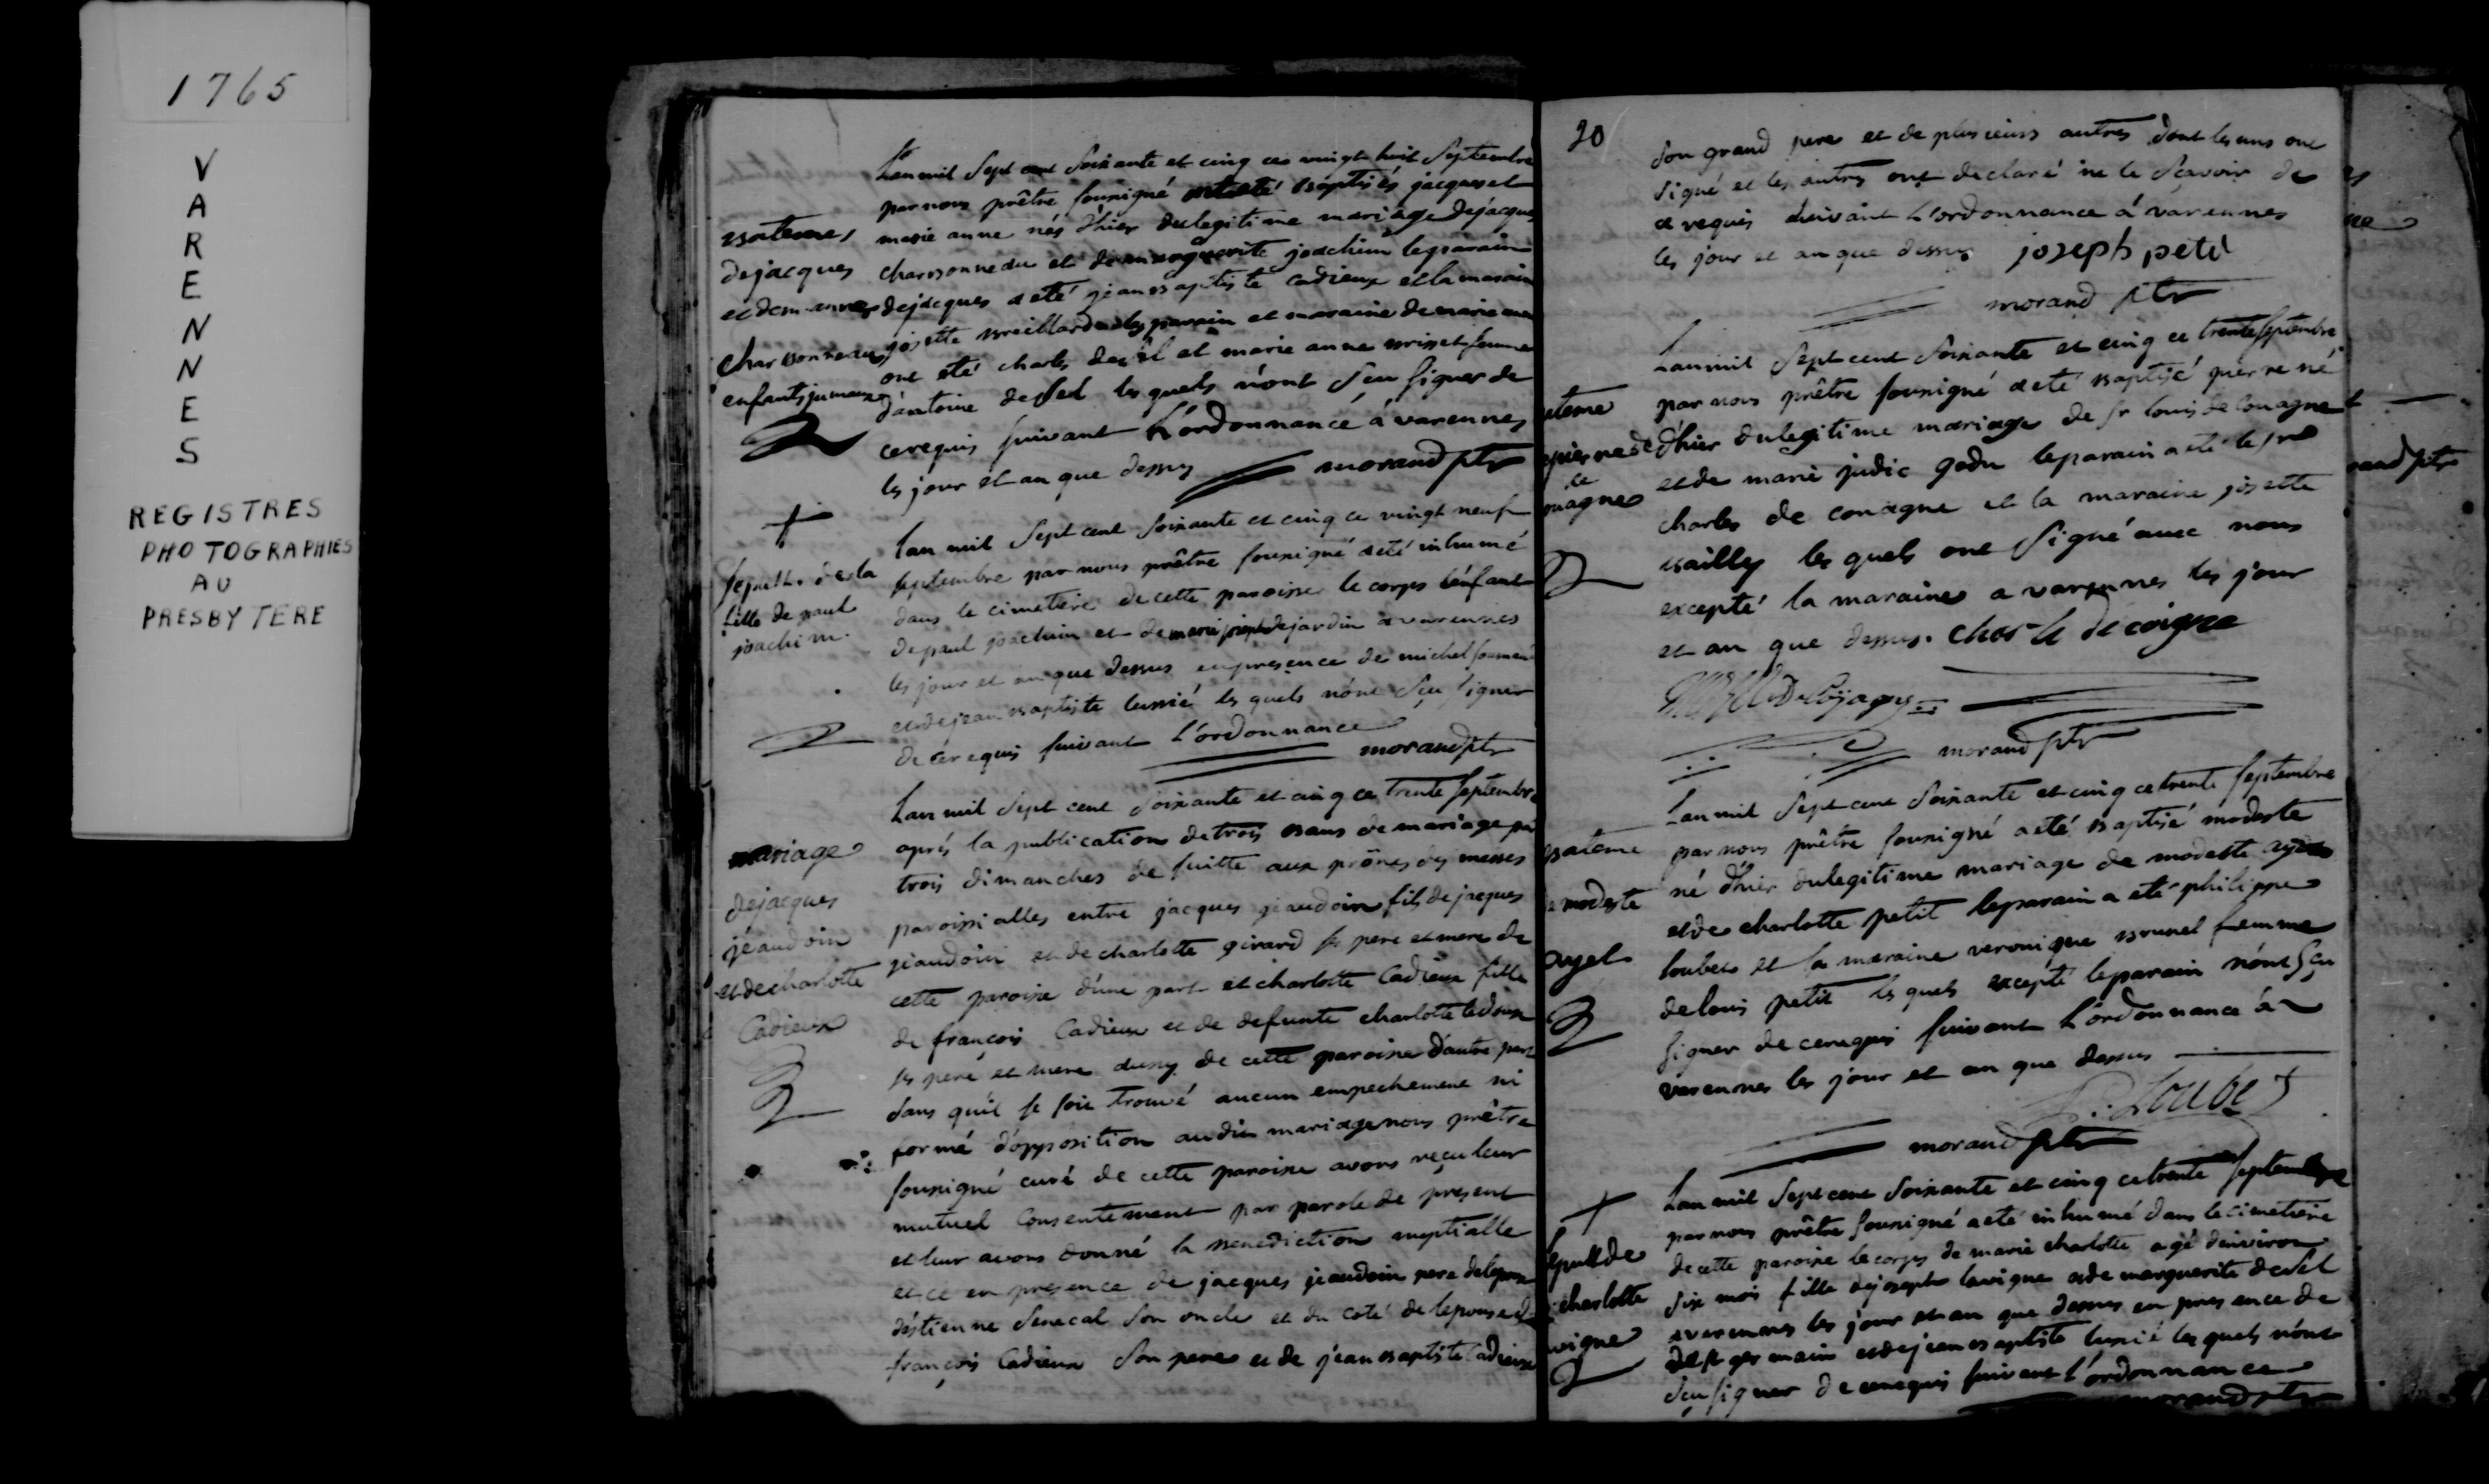 1765
VARENNES
REGISTRES
PHOTOGRAPHIES
AU
PRESBYTERE
Lan mil Sept cent Soixante et cinq ce vingt huit Septembre
par nous prêtre sousigné ont eté baptisés jacques et
marie anne nés d'hier du legitime mariage de jacques
charbonneau et de marguerite joachim le parain
de jacques a eté jean baptiste cadieux et la maraine
josette breillard les parain et maraine de marie anne
ont eté charles decel et marie anne brisset femme
d'antoine decel les quels n'ont sçu signer de
ce requis suivant L'ordonnance à varennes
les jour et an que dessus morand ptr
bateme
de jacques
et de m. anne
charbonneau
enfants jumeaux
Lan mil Sept cent Soixante et cinq ce vingt neuf
septembre par nous prêtre sousigné a eté inhumé
dans le cimetiere de cette paroisse le corps l'enfant
de paul joachim et de marie josephe jardin a varennes
les jour et an que dessus en presence de michel
et de jean baptiste lussié les quels n'ont sçu signer
de ce requis suivant L'ordonnance
morand ptr
sepult. de la
fille de paul
joachim.
Lan mil Sept cent Soixante et cinq ce trente Septembre
aprés la publication de trois bans de mariage par
trois dimanches de suitte aux prônes des messes
paroissialles entre jacques jeaudoin fils de jacques
jeaudoin et de charlotte girard ses pere et mere de
cette paroisse d'une part et charlotte Cadieux fille
de françois Cadieux et de defunte charlotte ledoux
ses pere et mere aussy de cette paroisse d'autre part
sans qu'il se soit trouvé aucun empechement ni
formé d'opposition audit mariage nous prêtre
sousigné curé de cette paroisse avons reçu leur
mutuel Consentement par parole de present
et leur avons donné la benediction nuptialle
et ce en presence de jacques jeaudoin pere de lepoux
d'estienne Senecal Son oncle et du coté de lepouse de
françois Cadieux Son pere et de jean baptiste Cadieux
mariage
de jacques
jeaudoin
et de charlotte
Cadieux
20
Son grand pere et de plusieurs autres dont les uns ont
signé et les autres ont declaré ne le Sçavoir de
ce requis suivant L'ordonnance á varennes
les jour et an que dessus joseph petit
morand ptr
Lan mil Sept cent Soixante et cinq ce trente septembre
par nous prêtre sousigné a eté baptisé pierre né
d'hier du legitime mariage de sr louis de Couagne
et de marie judic godu le parain a eté le sr
charles de couagne et la maraine josette
bailly les quels ont signé avec nous
excepté la maraine a varennes les jour
et an que dessus. Charle de coigne
morand ptr
ateme
pierre de
ouagne
Lan mil Sept cent Soixante et cinq ce trente septembre
par nous prêtre sousigné a eté baptisé modeste
né d'hier du legitime mariage de modeste ayet
et de charlotte petit le parain a eté philippe
loubet et la maraine veronique brunel femme
de louis petit les quels excepté le parain n'ont sçu
signer de ce requis suivant L'ordonnance á
varennes les jour et an que dessus
P. Loubet
morand ptr
bateme
de modeste
ayet
Lan mil Sept cent Soixante et cinq ce trente septembre
par nous prêtre sousigné a eté inhumé dans le cimetiere
de cette paroisse le corps de marie charlotte agé denviron
Six mois fille de joseph lavigne et de marguerite decel
a varennes les jour et an que dessus en presence de
de st germain et de jean baptiste lussié les quels n'ont
sçu signer de ce requis suivant L'ordonnance
morand ptr
sepult de
charlotte
vigne